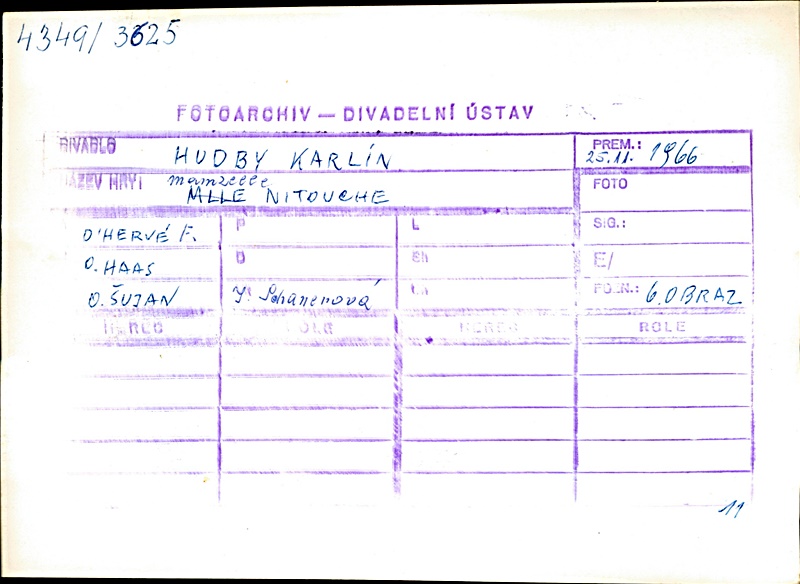 4349/ 3625
FOTOARCHIV — DIVADELNÍ ÚSTAV
DIVADLO HUDBY KARLÍN PREM.: 25.11. 1966
NÁZEV HRY mamzelle FOTO
MLLE NITOUCHE
D'HERVÉ F. P L SIG.:
O. HAAS D Ch E/
O. ŠUJAN POZN.: 6. OBRAZ
HEREC ROLE HEREC ROLE
11